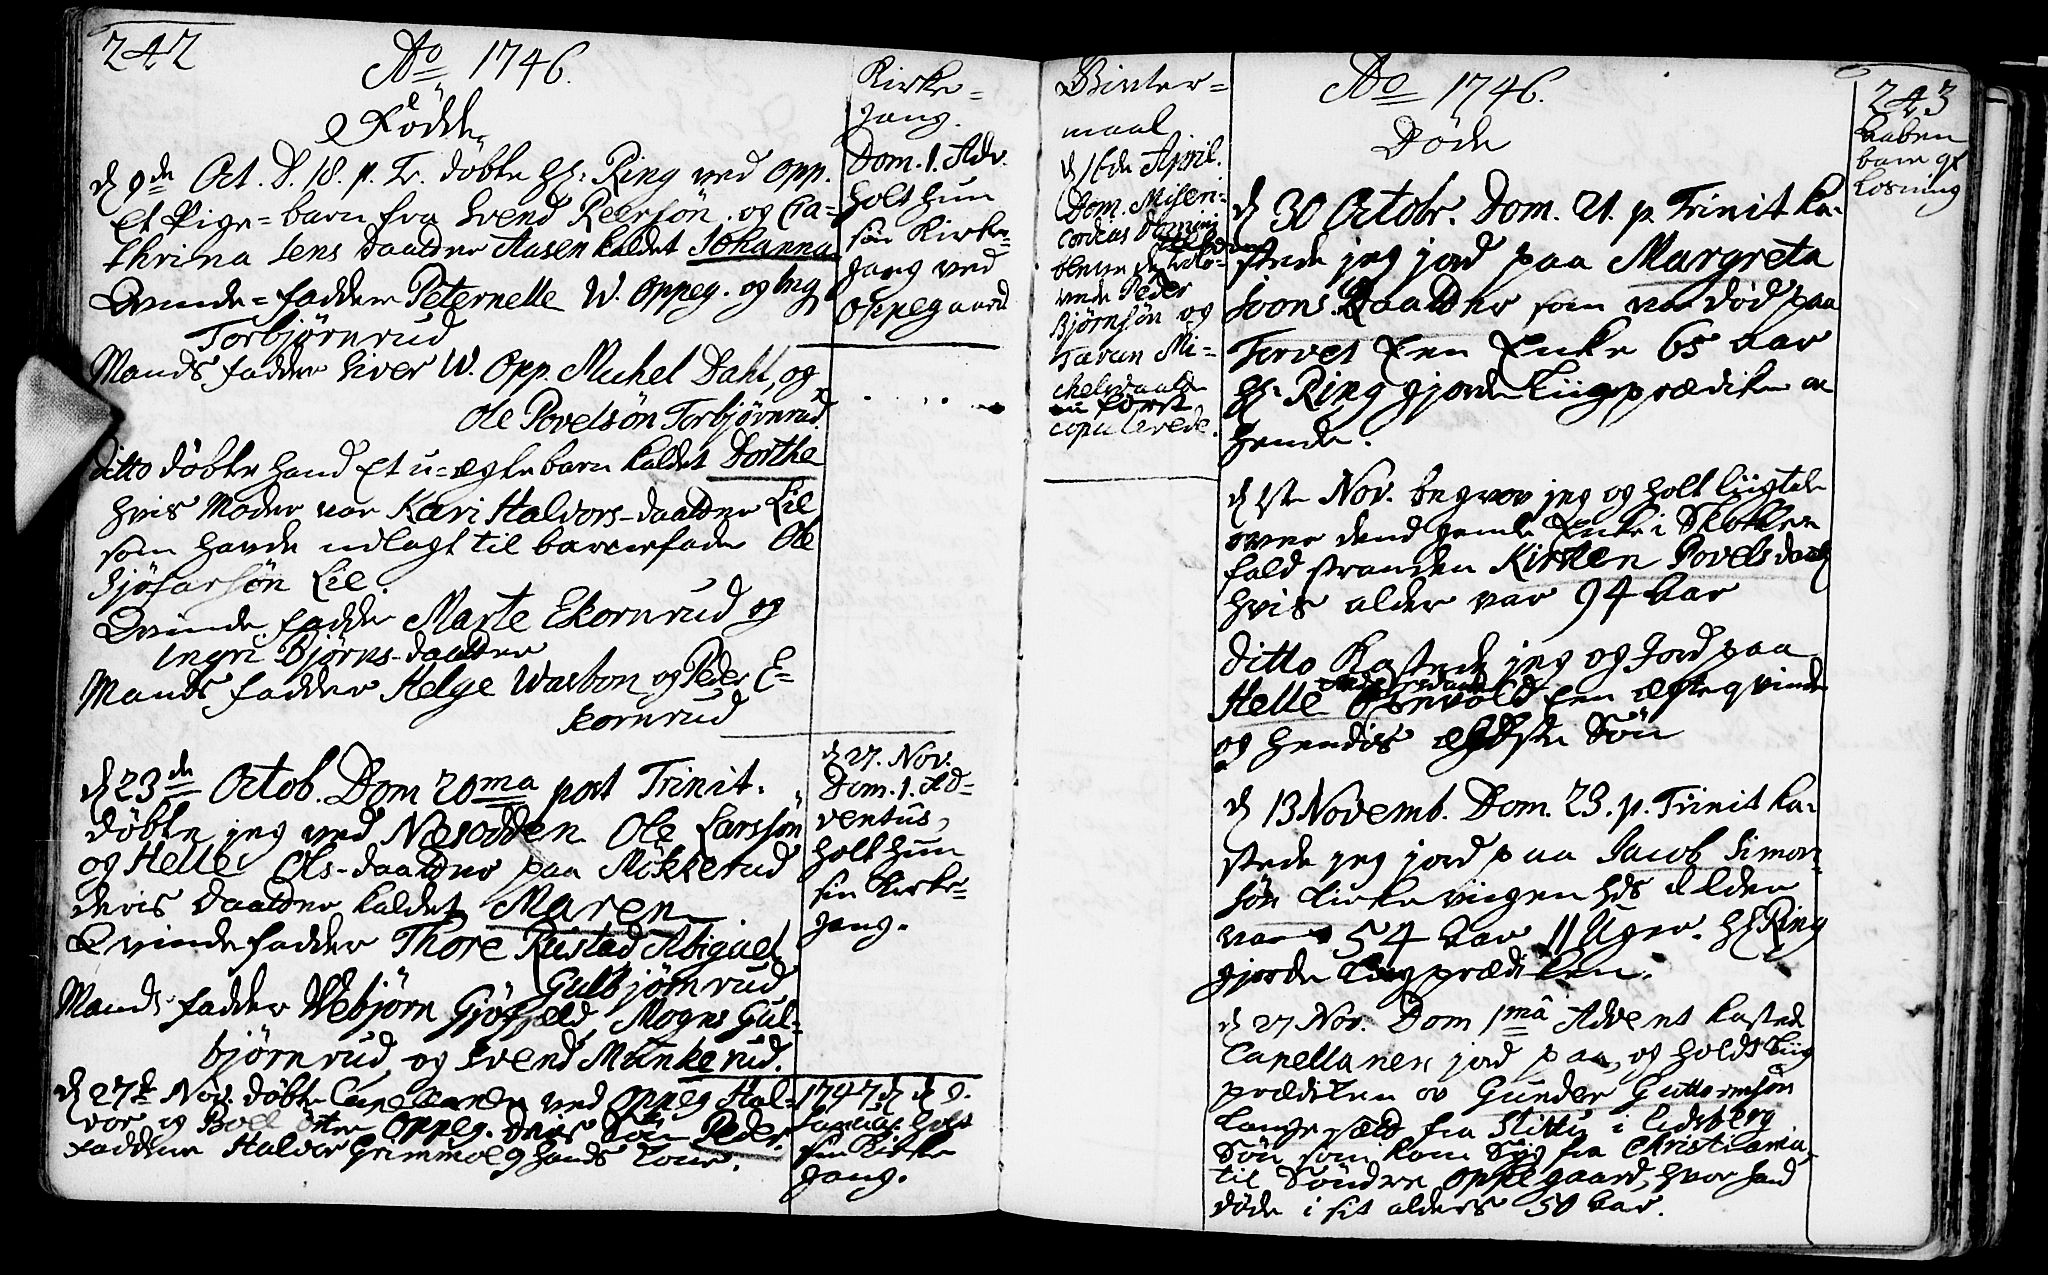 242
Ao 1746.
Födde
d 9de Oct. D. 18. p. Tr. döbte Hr: Ring ved Opp.
Et Pige-barn fra Svend Peersön og Ca-
thrina Jens daatter Aasen kaldet Johanna
Qvinde-faddere Peternelle W. Oppeg. og Ing.
Torbjørnrud
Mands faddere Siver W. Opp. Michel Dahl, og
Ole Povelsön Torbjørnrud.
Ditto döbte hand Et u-ægte barn kaldet Dorthe
hvis Moder var Kari Halvors-daatter Lil
som havde udlagt til barnefader Ole
Lil.
Qvinde faddere Marte Ekornrud og
Ingri Bjørns-daatter
Mands faddere Helge Warbon og Peder E-
kornrud
d 23de Octob. Dom 20ma post Trinit.
döbte jeg ved Nesodden Ole Larssön
og Helle Ols-daatter paa Mökkerud
deris daatter kaldet Maren
Qvindefadder Thore Rustad Abigael
Gulbjørnrud
Mands fadder Webjørn Gjøfjeld, Mogns Gul-
bjørnrud og Svend Munkerud.
d 27de Nov. döbte Capellanen ved Oppeg Hal-
vor og öster Oppeg. deres Sön Peder.
faddere Halvor Grimmol hands Kone.
Kirke-
gang.
Dom. 1. Adv.
holt hun
sin Kirke-
gang ved
Oppegaard
d 27. Nov.
Dom. 1. Ad-
ventus,
holt hun
sin Kirke-
gang.
1747 d 2.
holt
sin Kirke
gang.
maal
d 16de April.
Dom. Miseri-
cordias Domini
bleve
Peder
Björnsön og
Taran Mi-
chelsdaatter
först
copulerede.
Ao 1746.
Döde
d 30 Octobr. Dom. 21. p. Trinit ka-
stede jeg jord paa Margreta
Daatter som var död paa
Torvet Een Enke 65 aar
Hr: Ring gjorde Liigprædiken over
hende.
d 1ste Nov. begrov jeg og holt liigtale
over dend gamle Enke i Skokke
fald stranden Kirsten Povelsdaatter
hvis alder var 94 Aar
Ditto Kastede jeg og Jord paa
Helle Een qvinde
og hendis ældste Sön
d 13 Novemb. Dom. 23. p. Trinit ka-
stede jeg jord paa Jacob Simon-
sön vigen hds alder
var 54 Aar 11 Uger. Hr Ring
gjorde Liigprædiken.
d 27 Nov. Dom 1ma Advent kastede
Capellanen jord paa, og holdt Liig
prædiken ov Gunder Guttormsön
Lange fra i Eidsberg
Sön som kom Syg fra Christiania
til Söndre Oppegaard, hvor hand
döde i sit alders 50 Aar.
243